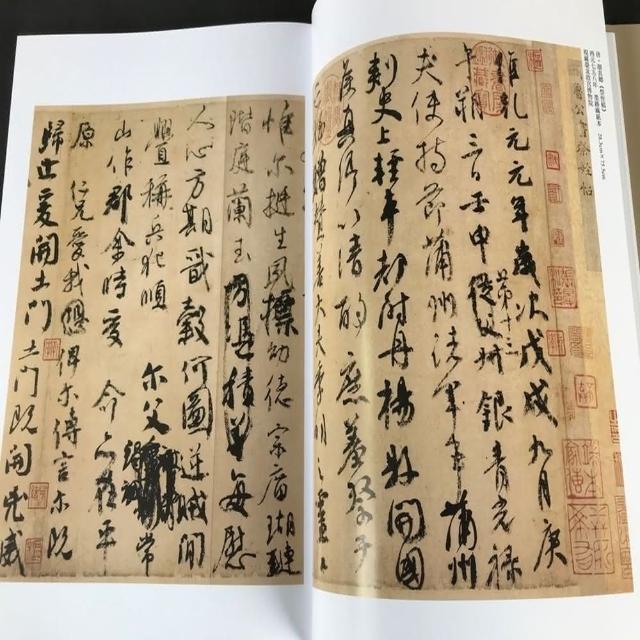 唐·顏真卿《祭侄稿》
西元七五八年
28.3cm x 75.5cm
維乾元元年歲次戊戌九月庚
午朔三日壬申第十三從父 銀青光祿
夫使持節蒲州諸軍事蒲州
刺史上輕車都尉丹楊縣開國
侯真卿以清酌庶羞祭于
亡姪贈贊善大夫季明之靈
惟尔挺生夙標幼德宗廟瑚璉
階庭蘭玉方憑積善每慰
人心方期戩穀何圖逆賊閒
釁稱兵犯順 尔父 常
山作郡余時受 命亦在平
原 仁兄愛我俾尔傳言尔既
歸止爰開土門土門既開凶威